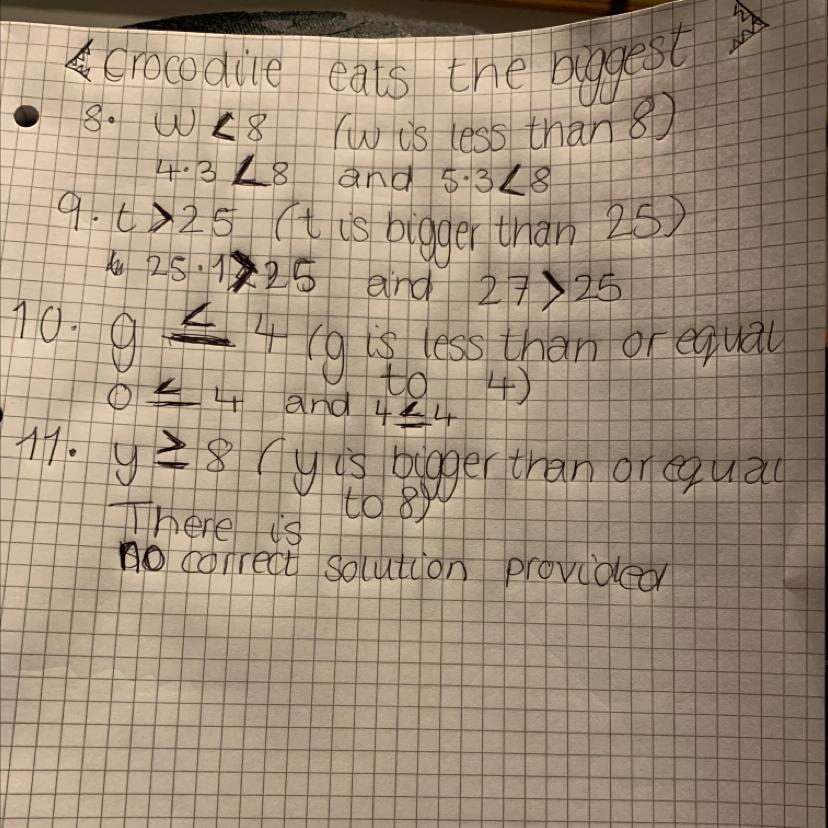 Crocodile eats the biggest
8. w < 8 (w is less than 8)
4.3 < 8 and 5.3 < 8
9. t > 25 (t is bigger than 25)
25.1 > 25 and 27 > 25
10. g ≤ 4 (g is less than or equal
to 4)
0 ≤ 4 and 4 ≤ 4
11. y ≥ 8 (y is bigger than or equal
to 8)
There is
no correct solution provided